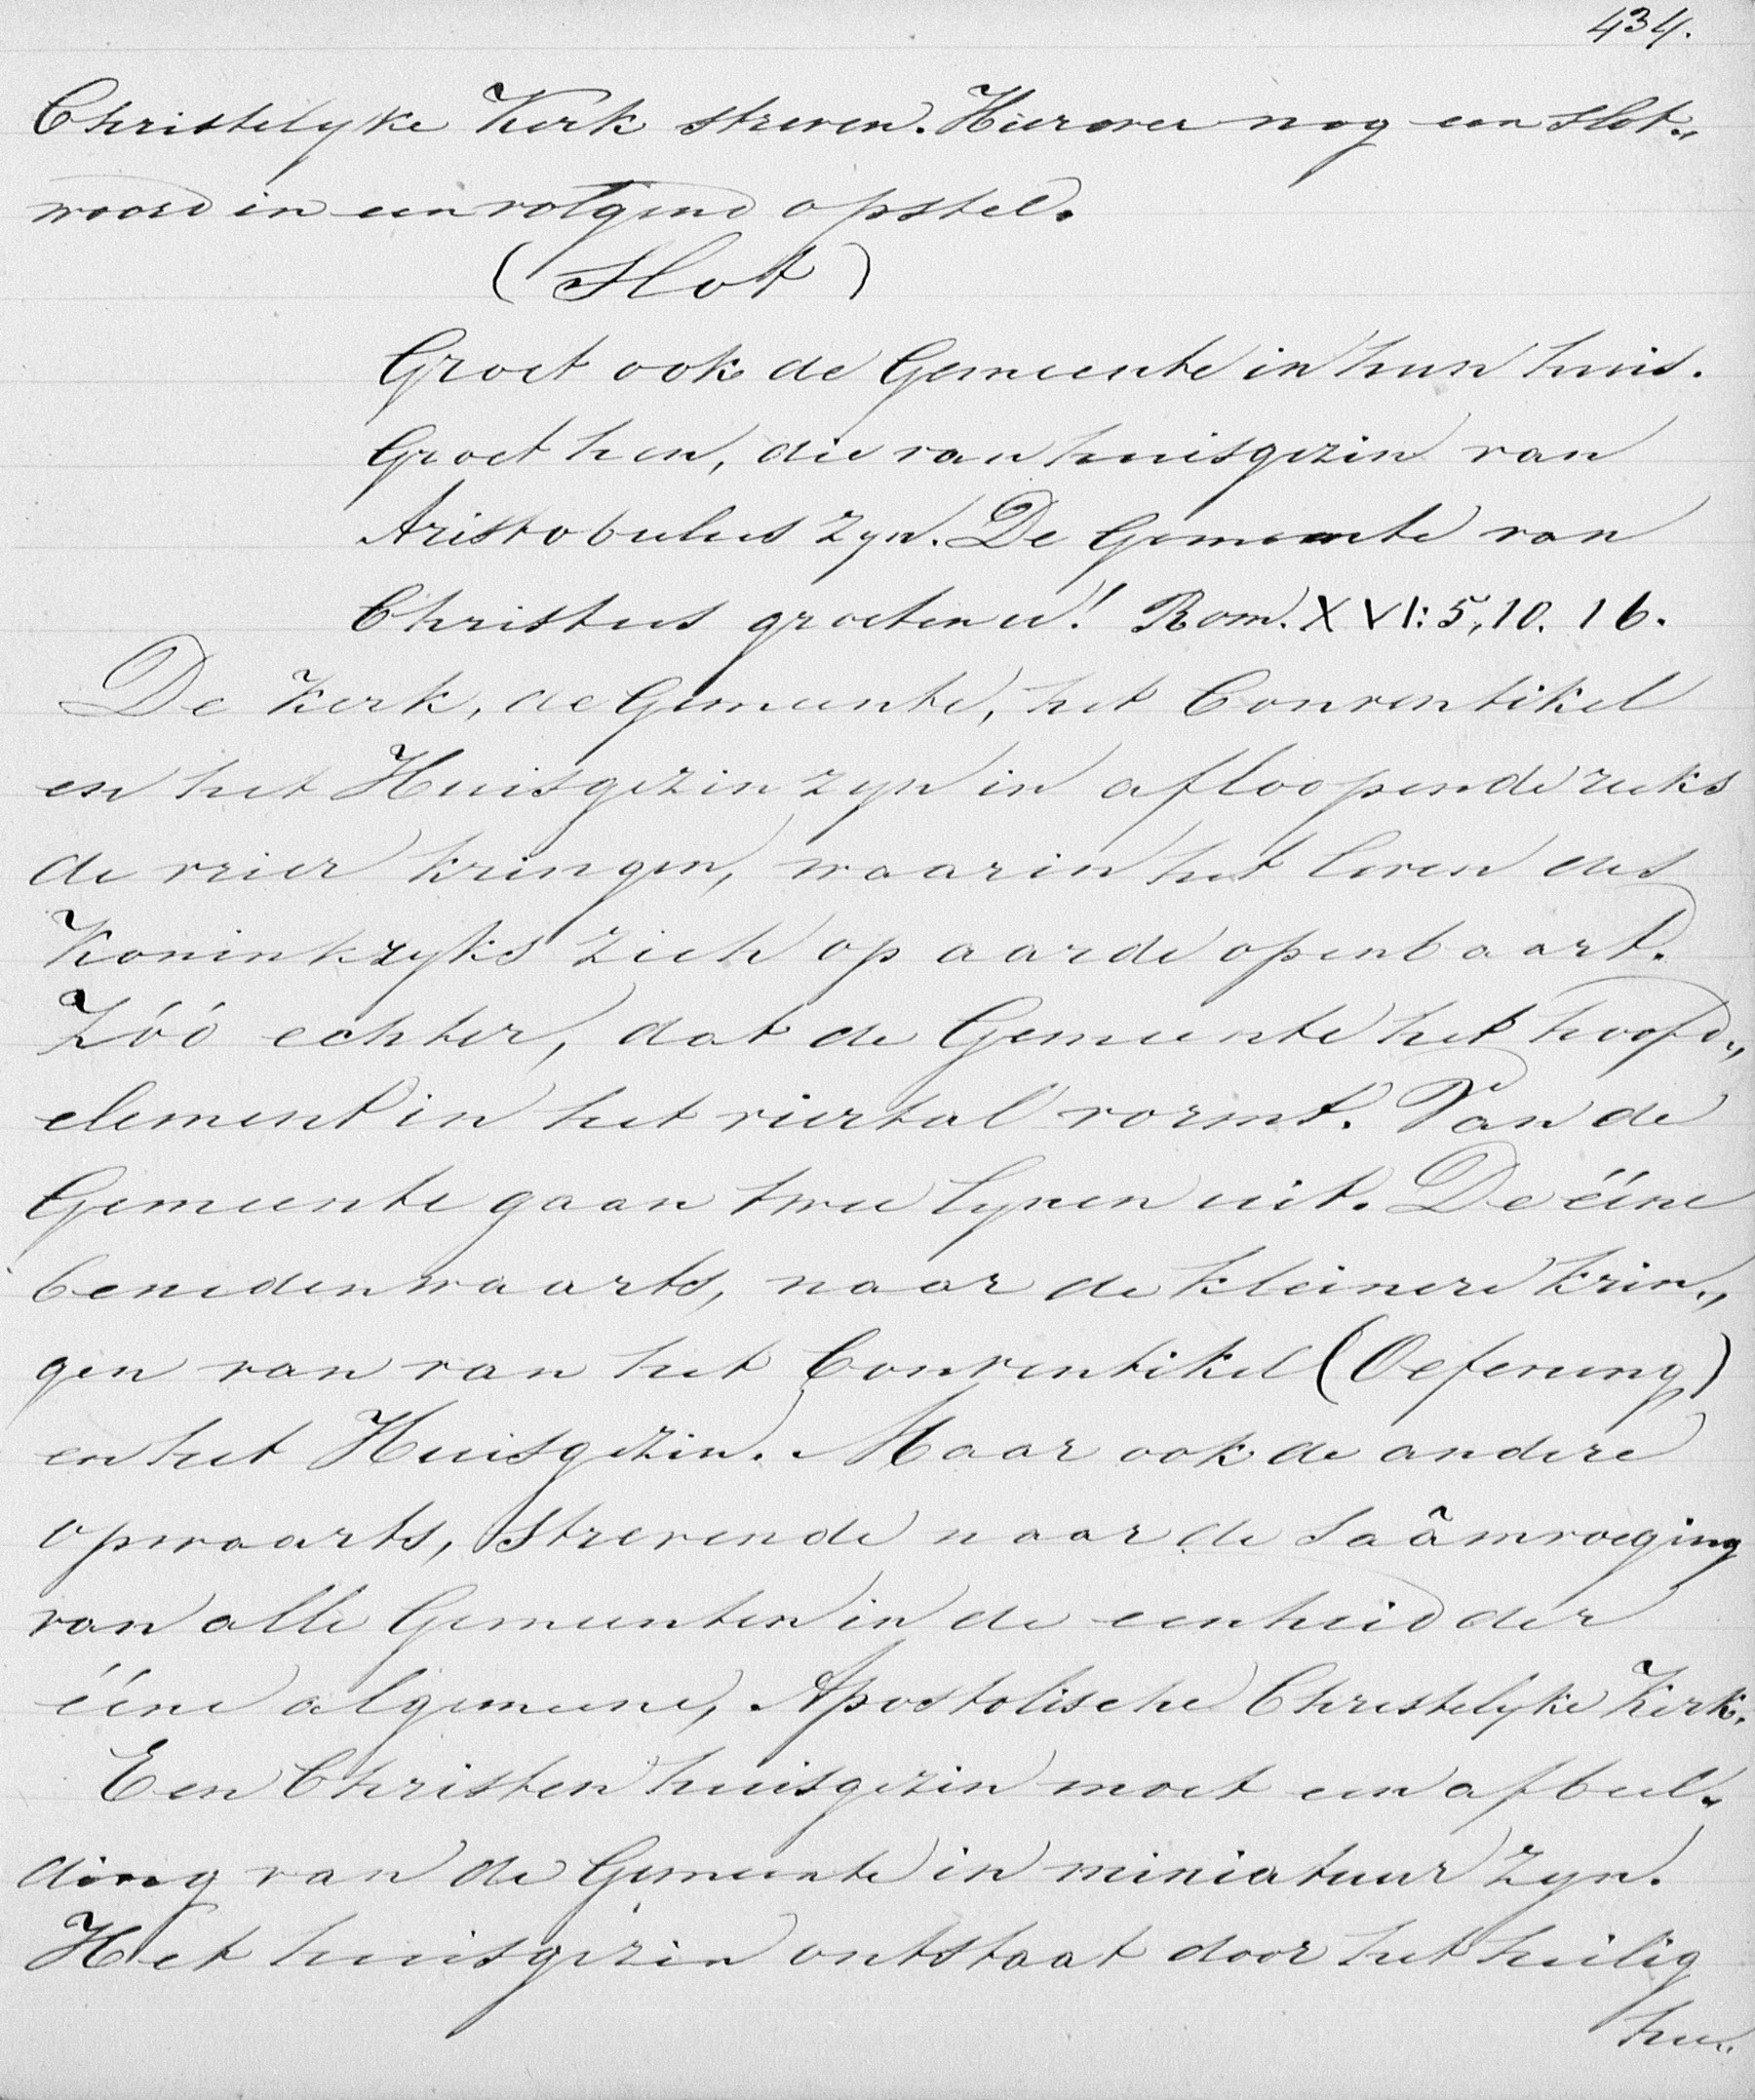 434.
Christelyke Kerk streven. Hierover nog een slot„
woord in een volgend opstel.
(Slot)
Groet ook de Gemeente in hun huis.
Groet hen, die van huisgezin van
Aristobulus zyn. De Gemeente van
Christus groeten u! Rom. XVI: 5, 10. 16.
De Kerk, de Gemeente, het Conventikel
en het Huisgezin zyn in afloopende reeks
de vier kringen, waarin het leven des
Koninkryks zich op aarde openbaart.
Zóó echter, dat de Gemeente het hoofd„
element in het viertal vormt. Van de
Gemeente gaan twee lynen uit. De ééne
benedenwaarts, naar de kleinere krin„
gen van van het Conventikel (Oefening)
en het Huisgezin. Maar ook de andere
opwaarts, strevende naar de saâmvoeging
van alle Gemeenten in de eenheid der
ééne algemeene, Apostolische Christelyke Kerk.
Een Christen huisgezin moet een afbeel„
ding van de Gemeente in miniatuur zyn.
Het huisgezin ontstaat door het heilig
hu„